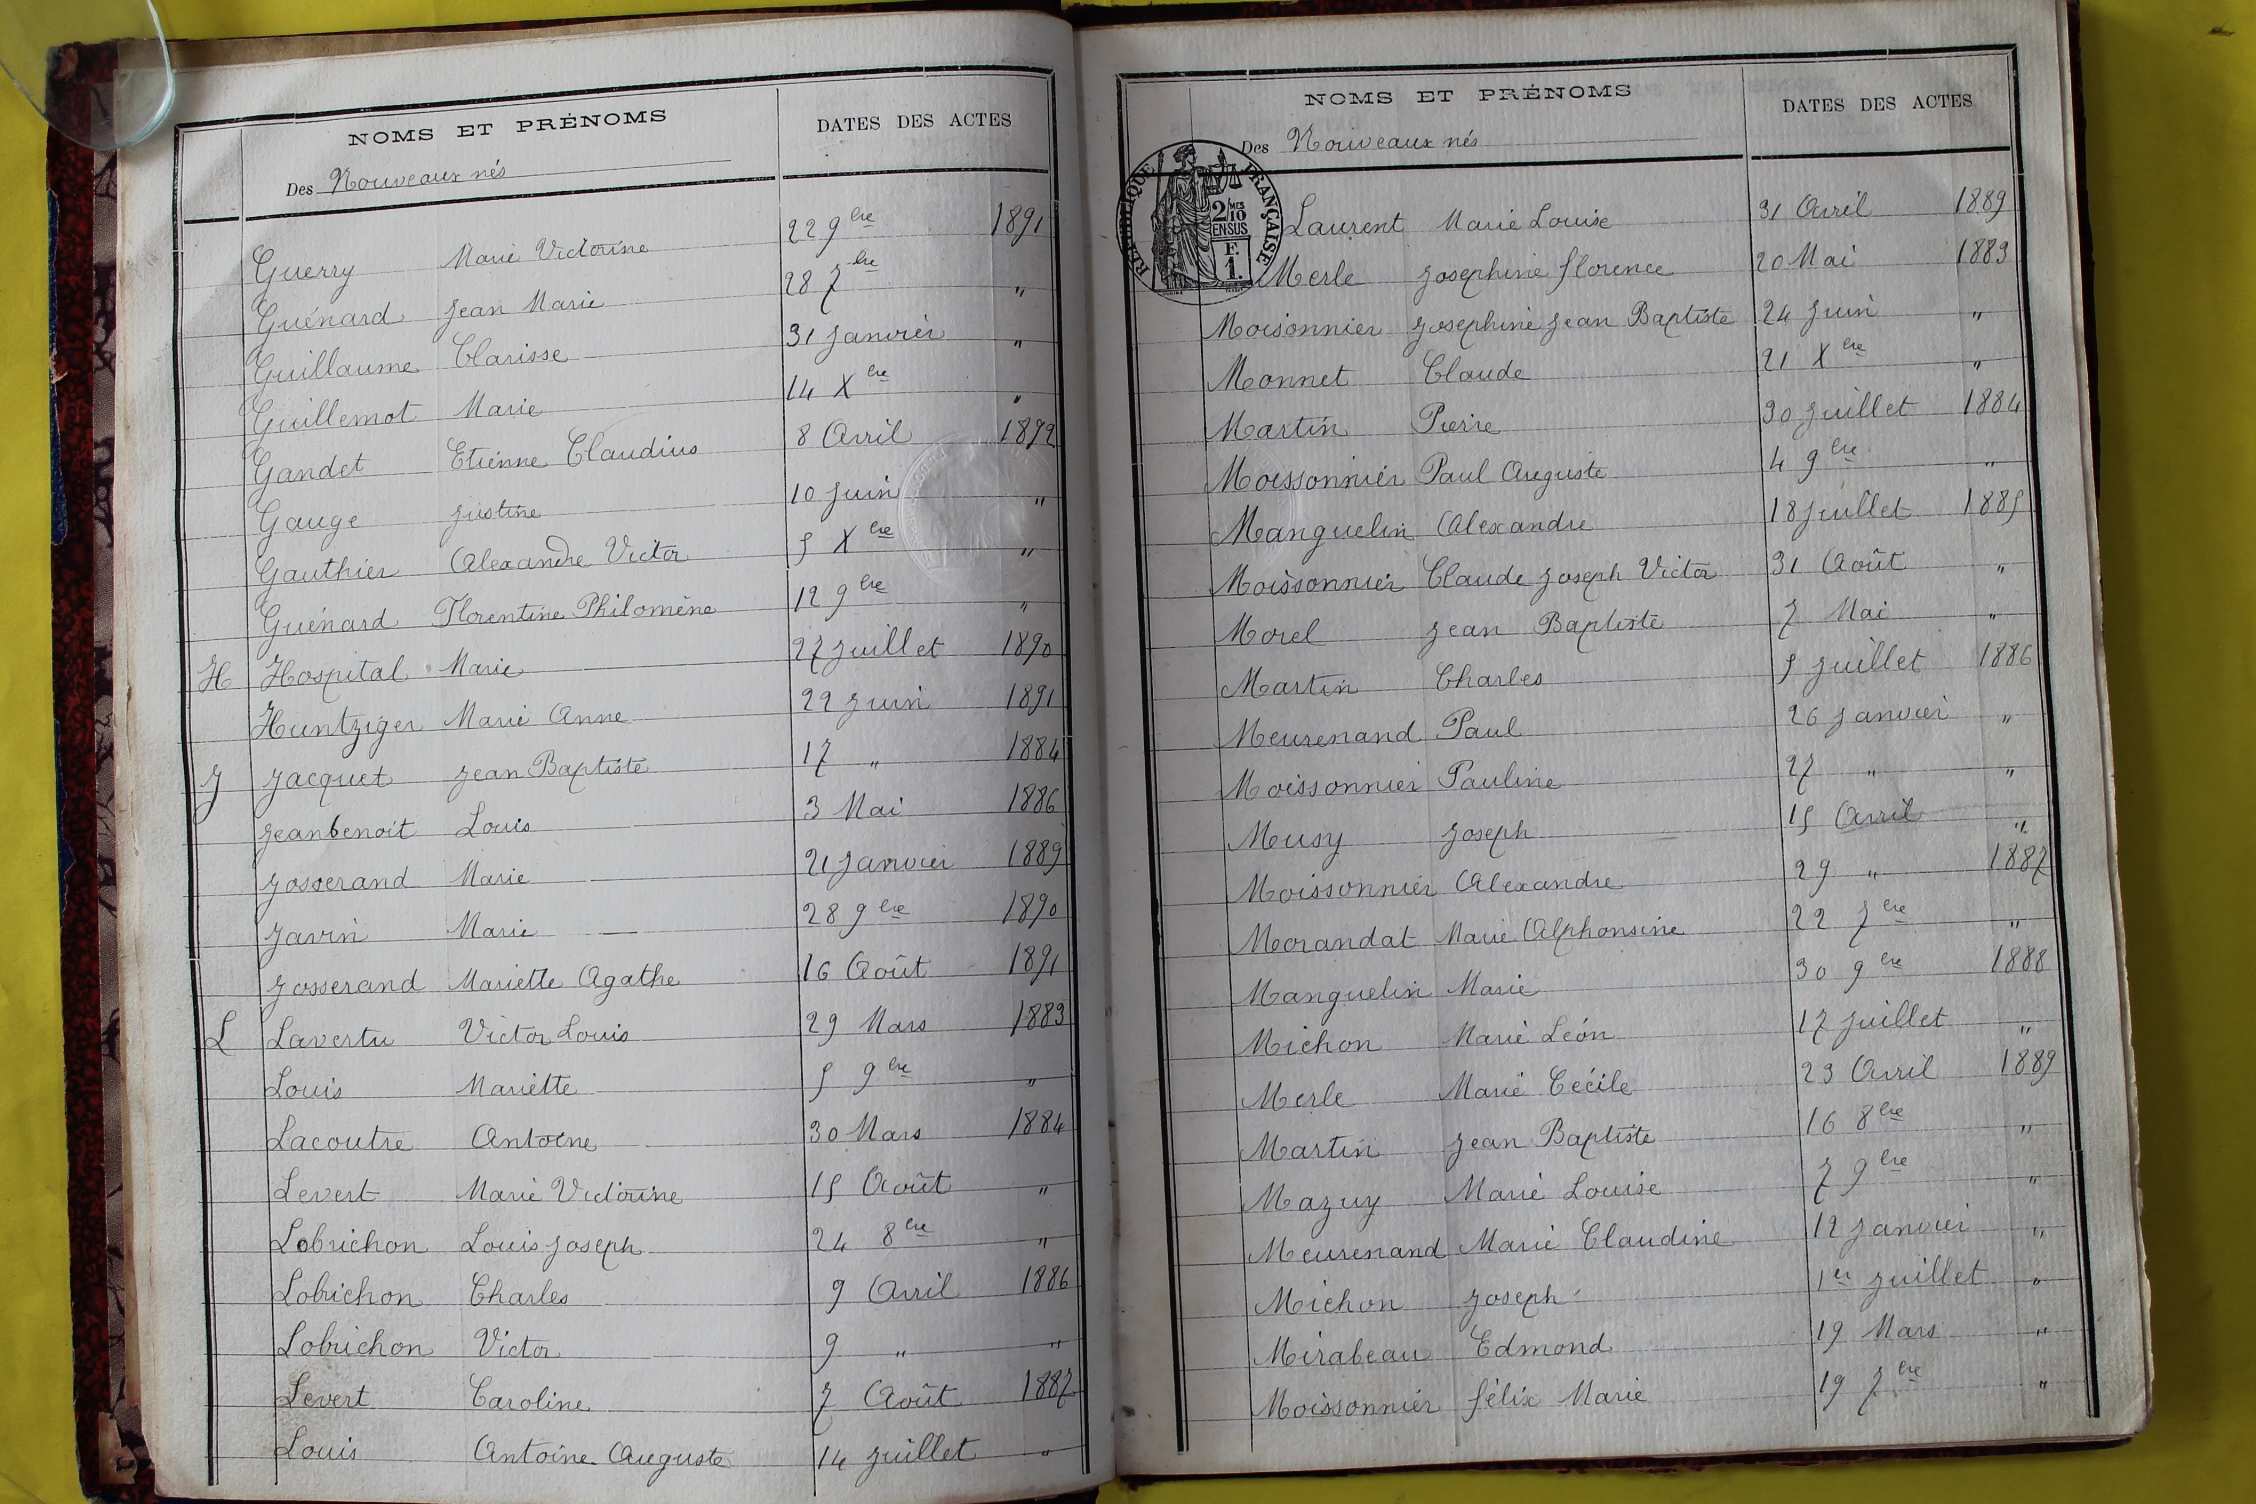 NOMS ET PRÉNOMS DATES DES ACTES
Des Nouveaux nés
Guerry Marie Victorine 22 9bre 1891
Guénard Jean Marie 28 7bre "
Guillaume Clarisse 31 Janvier "
Guillemot Marie 14 Xbre "
Gandet Etienne Claudius 8 Avril 1892
Gauge Justine 10 Juin "
Gauthier Alexandre Victor 5 Xbre "
Guénard Florentine Philomène 12 9bre "
H Hospital Marie 27 Juillet 1890
Huntziger Marie Anne 22 Juin 1891
J Jacquet Jean Baptiste 17 " 1884
Jeanbenoit Louis 3 Mai 1886
Josserand Marie 21 Janvier 1889
Javin Marie 28 9bre 1890
Josserand Mariette Agathe 16 Août 1891
L Lavertu Victor Louis 29 Mars 1883
Louis Mariette 5 9bre "
Lacoutre Antoine 30 Mars 1884
Levert Marie Victorine 15 Août "
Lobrichon Louis Joseph 24 8bre "
Lobrichon Charles 9 Avril 1886
Lobrichon Victor 9 " "
Levert Caroline 7 Août 1887
Louis Antoine Auguste 14 Juillet "
NOMS ET PRÉNOMS DATES DES ACTES
Des Nouveaux nés
RÉPUBLIQUE FRANÇAISE
2/10 MES
EN SUS
F.
1.
Laurent Marie Louise 31 Avril 1889
Merle Josephine Florence 20 Mai 1883
Moisonnier Josephine Jean Baptiste 24 Juin "
Monnet Claude 21 Xbre "
Martin Pierre 30 Juillet 1884
Moissonnier Paul Auguste 4 9bre "
Manguelin Alexandre 18 Juillet 1885
Moissonnier Claude Joseph Victor 31 Août "
Morel Jean Baptiste 7 Mai "
Martin Charles 5 Juillet 1886
Meurenand Paul 26 Janvier "
Moissonnier Pauline 27 " "
Meusy Joseph 15 Avril "
Moissonnier Alexandre 29 " 1887
Morandat Marie Alphonsine 22 7bre "
Manguelin Marie 30 9bre 1888
Michon Marie Léon 17 Juillet "
Merle Marie Cécile 23 Avril 1889
Martin Jean Baptiste 16 8bre "
Mazuy Marie Louise 7 9bre "
Meurenand Marie Claudine 12 Janvier "
Michon Joseph 1er Juillet "
Mirabeau Edmond 19 Mars "
Moissonnier Félix Marie 19 7bre "